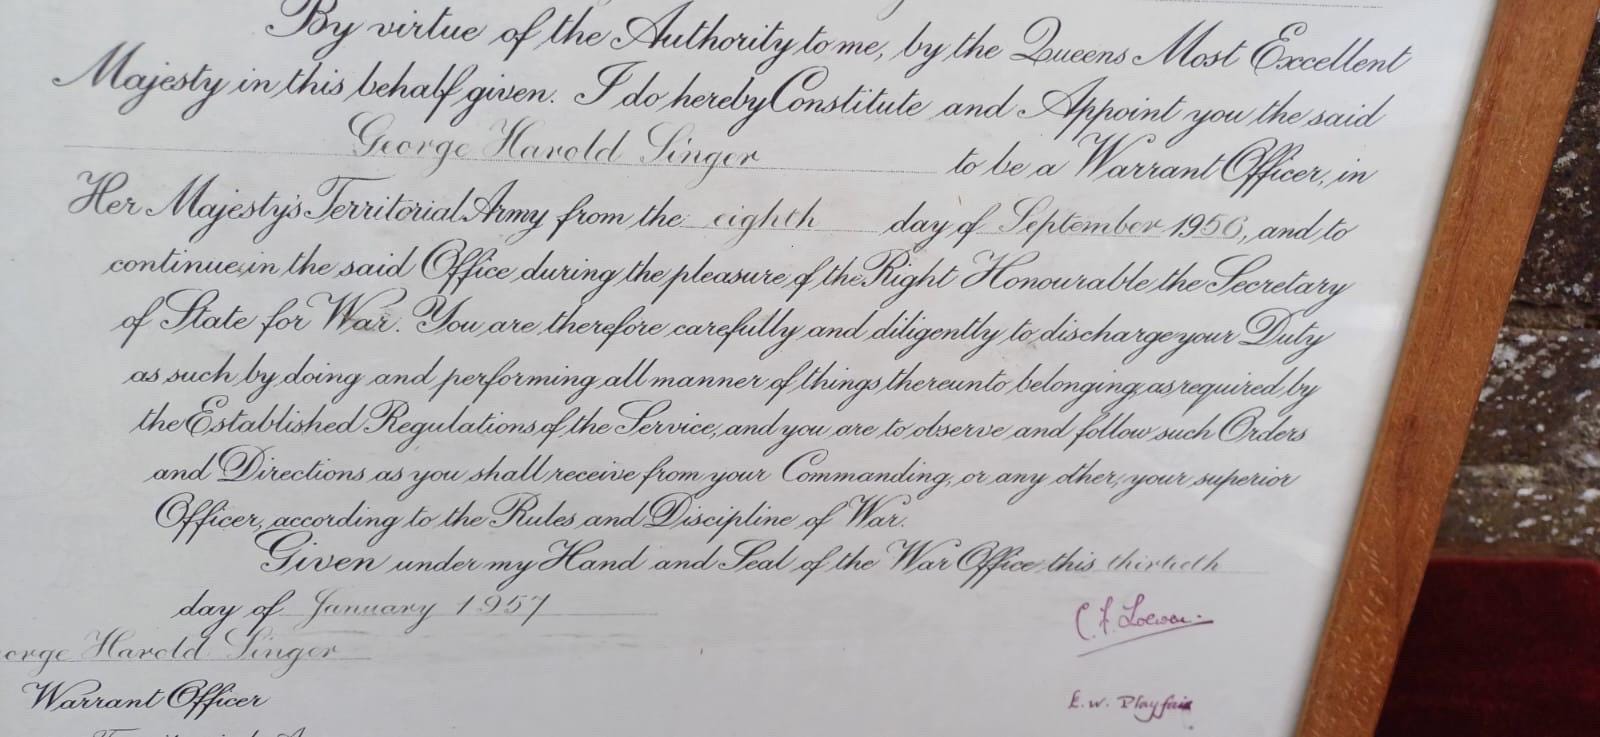 By virtue of the Authority to me, by the Queens Most Excellent
Majesty in this behalf given. I do hereby Constitute and Appoint you the said
George Harold Singer to be a Warrant Officer, in
Her Majesty's Territorial Army from the eighth day of September 1956, and to
continue in the said Office during the pleasure of the Right Honourable the Secretary
of State for War. You are therefore carefully and diligently to discharge your Duty
as such by doing and performing all manner of things thereunto belonging, as required by
the Established Regulations of the Service, and you are to observe and follow such Orders
and Directions as you shall receive from your Commanding, or any other, your superior
Officer, according to the Rules and Discipline of War.
Given under my Hand and Seal of the War Office this thirtieth
day of January 1957
C. F. Loewen.
orge Harold Singer
Warrant Officer
E. W. Playfair